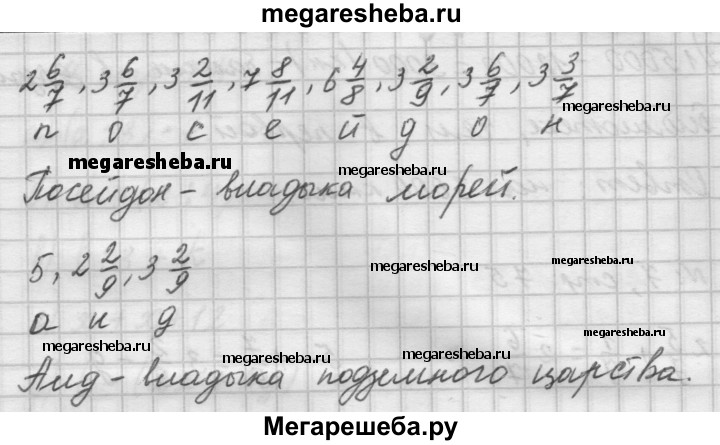 megaresheba.ru
2 6/7, 3 6/7, 3 2/11, 7 8/11, 6 4/8, 3 2/9, 3 6/7, 3 3/7
п о с е й д о н
megaresheba.ru
megaresheba.ru
megaresheba.ru
Посейдон – владыка морей.
megaresheba.ru
5, 2 2/9, 3 2/9
megaresheba.ru
megaresheba.ru
а и д
megaresheba.ru
megaresheba.ru
megaresheba.ru
Аид – владыка подземного царства.
Мегарешеба.ру